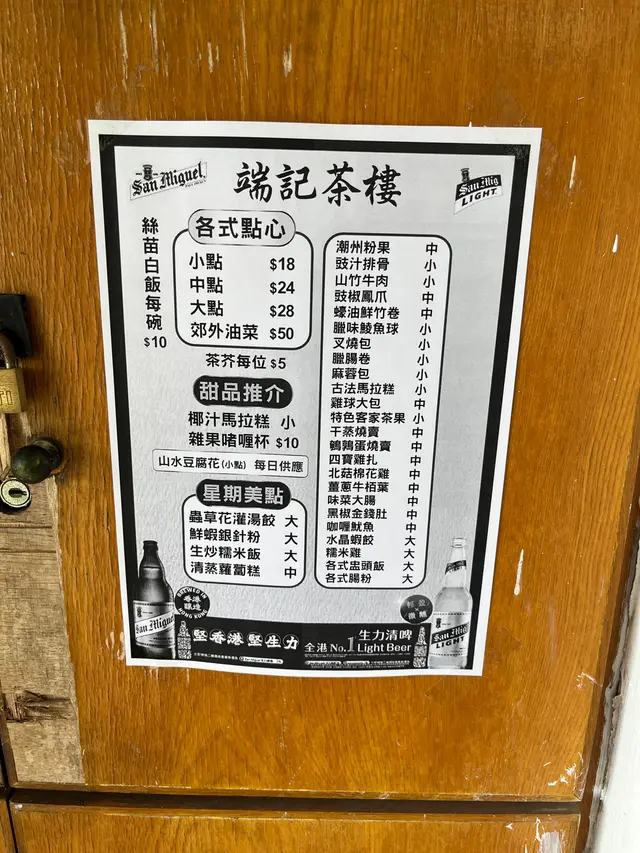 San Miguel
端記茶樓
San Mig
LIGHT
絲苗白飯每碗
$10
各式點心
小點 $18
中點 $24
大點 $28
郊外油菜 $50
茶芥每位 $5
甜品推介
椰汁馬拉糕 小
雜果啫喱杯 $10
山水豆腐花(小點) 每日供應
星期美點
蟲草花灌湯餃 大
鮮蝦銀針粉 大
生炒糯米飯 大
清蒸蘿蔔糕 中
潮州粉果 中
豉汁排骨 小
山竹牛肉 小
豉椒鳳爪 中
蠔油鮮竹卷 中
臘味鯪魚球 小
叉燒包 小
臘腸卷 小
麻蓉包 小
古法馬拉糕 小
雞球大包 中
特色客家茶果 小
干蒸燒賣 中
鵪鶉蛋燒賣 中
四寶雞扎 中
北菇棉花雞 中
薑蔥牛栢葉 中
味菜大腸 中
黑椒金錢肚 中
咖喱魷魚 中
水晶蝦餃 大
糯米雞 大
各式盅頭飯 大
各式腸粉 大
BREWED IN
香港
釀造
HONG KONG
San Miguel
輕盈
微醺
San Mig
LIGHT
堅香港堅生力
全港No.1
生力清啤
Light Beer